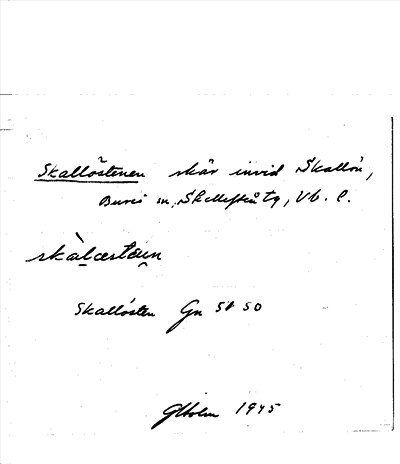 Skallöstenen skär invid Skallön,
Bureå sn, Skellefteå tg, Vb. l.
skàlœstœ̣un
Skallösten Gn 58 50
GHolm 1945